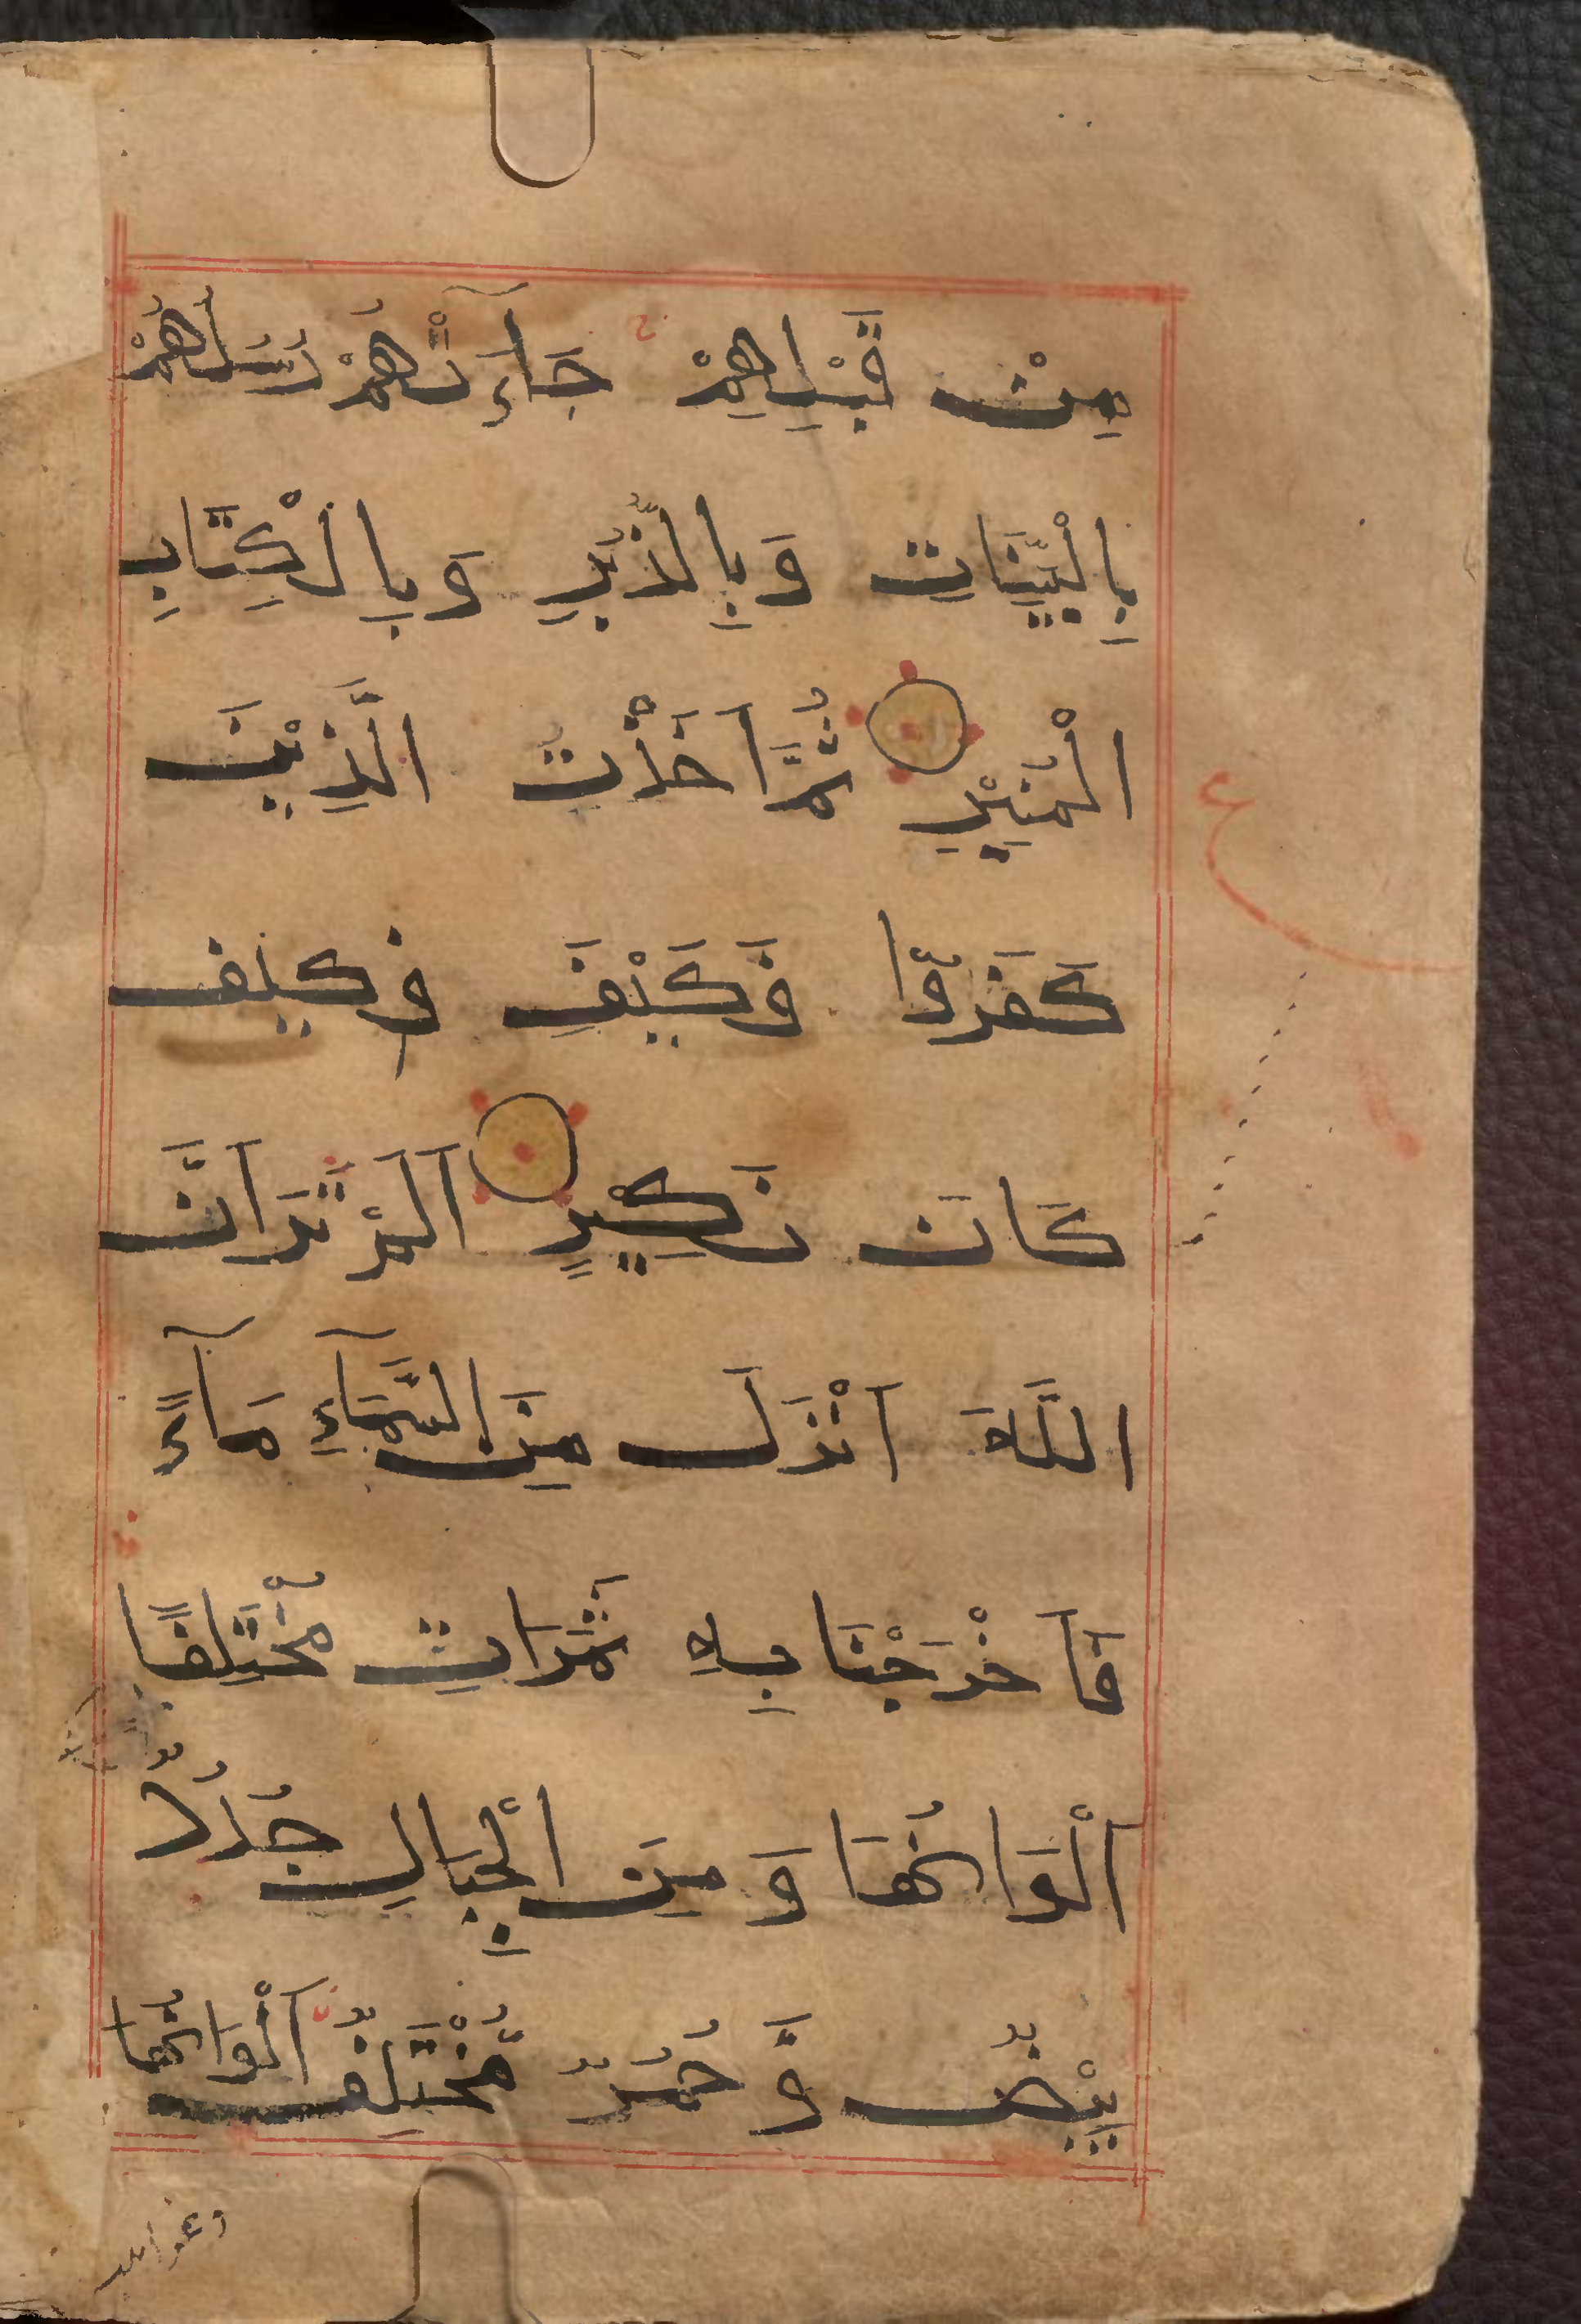 مِنْ قَبْلِهِمْ جَآءَتْهُمْ رُسُلُهُمْ
بِالْبَيِّنَاتِ وَبِالزُّبُرِ وَبِالْكِتَابِ
الْمُنِيْرِ ثُمَّ اَخَذْتُ الَّذِيْنَ
كَفَرُوْا فَكَيْفَ فكيف
كَانَ نَكِيْرٍ اَلَمْ تَرَ اَنَّ
اللَّهَ اَنْزَلَ مِنَ السَّمَآءِ مَآءً
فَاَخْرَجْنَا بِهِ ثَمَرَاتٍ مُّخْتَلِفًا
اَلْوَانُهَا وَمِنَ الْجِبَالِ جُدَدٌ
بِيْضٌ وَّحُمُرٌ مُّخْتَلِفٌ اَلْوَانُهَا
وغرابيب
ع